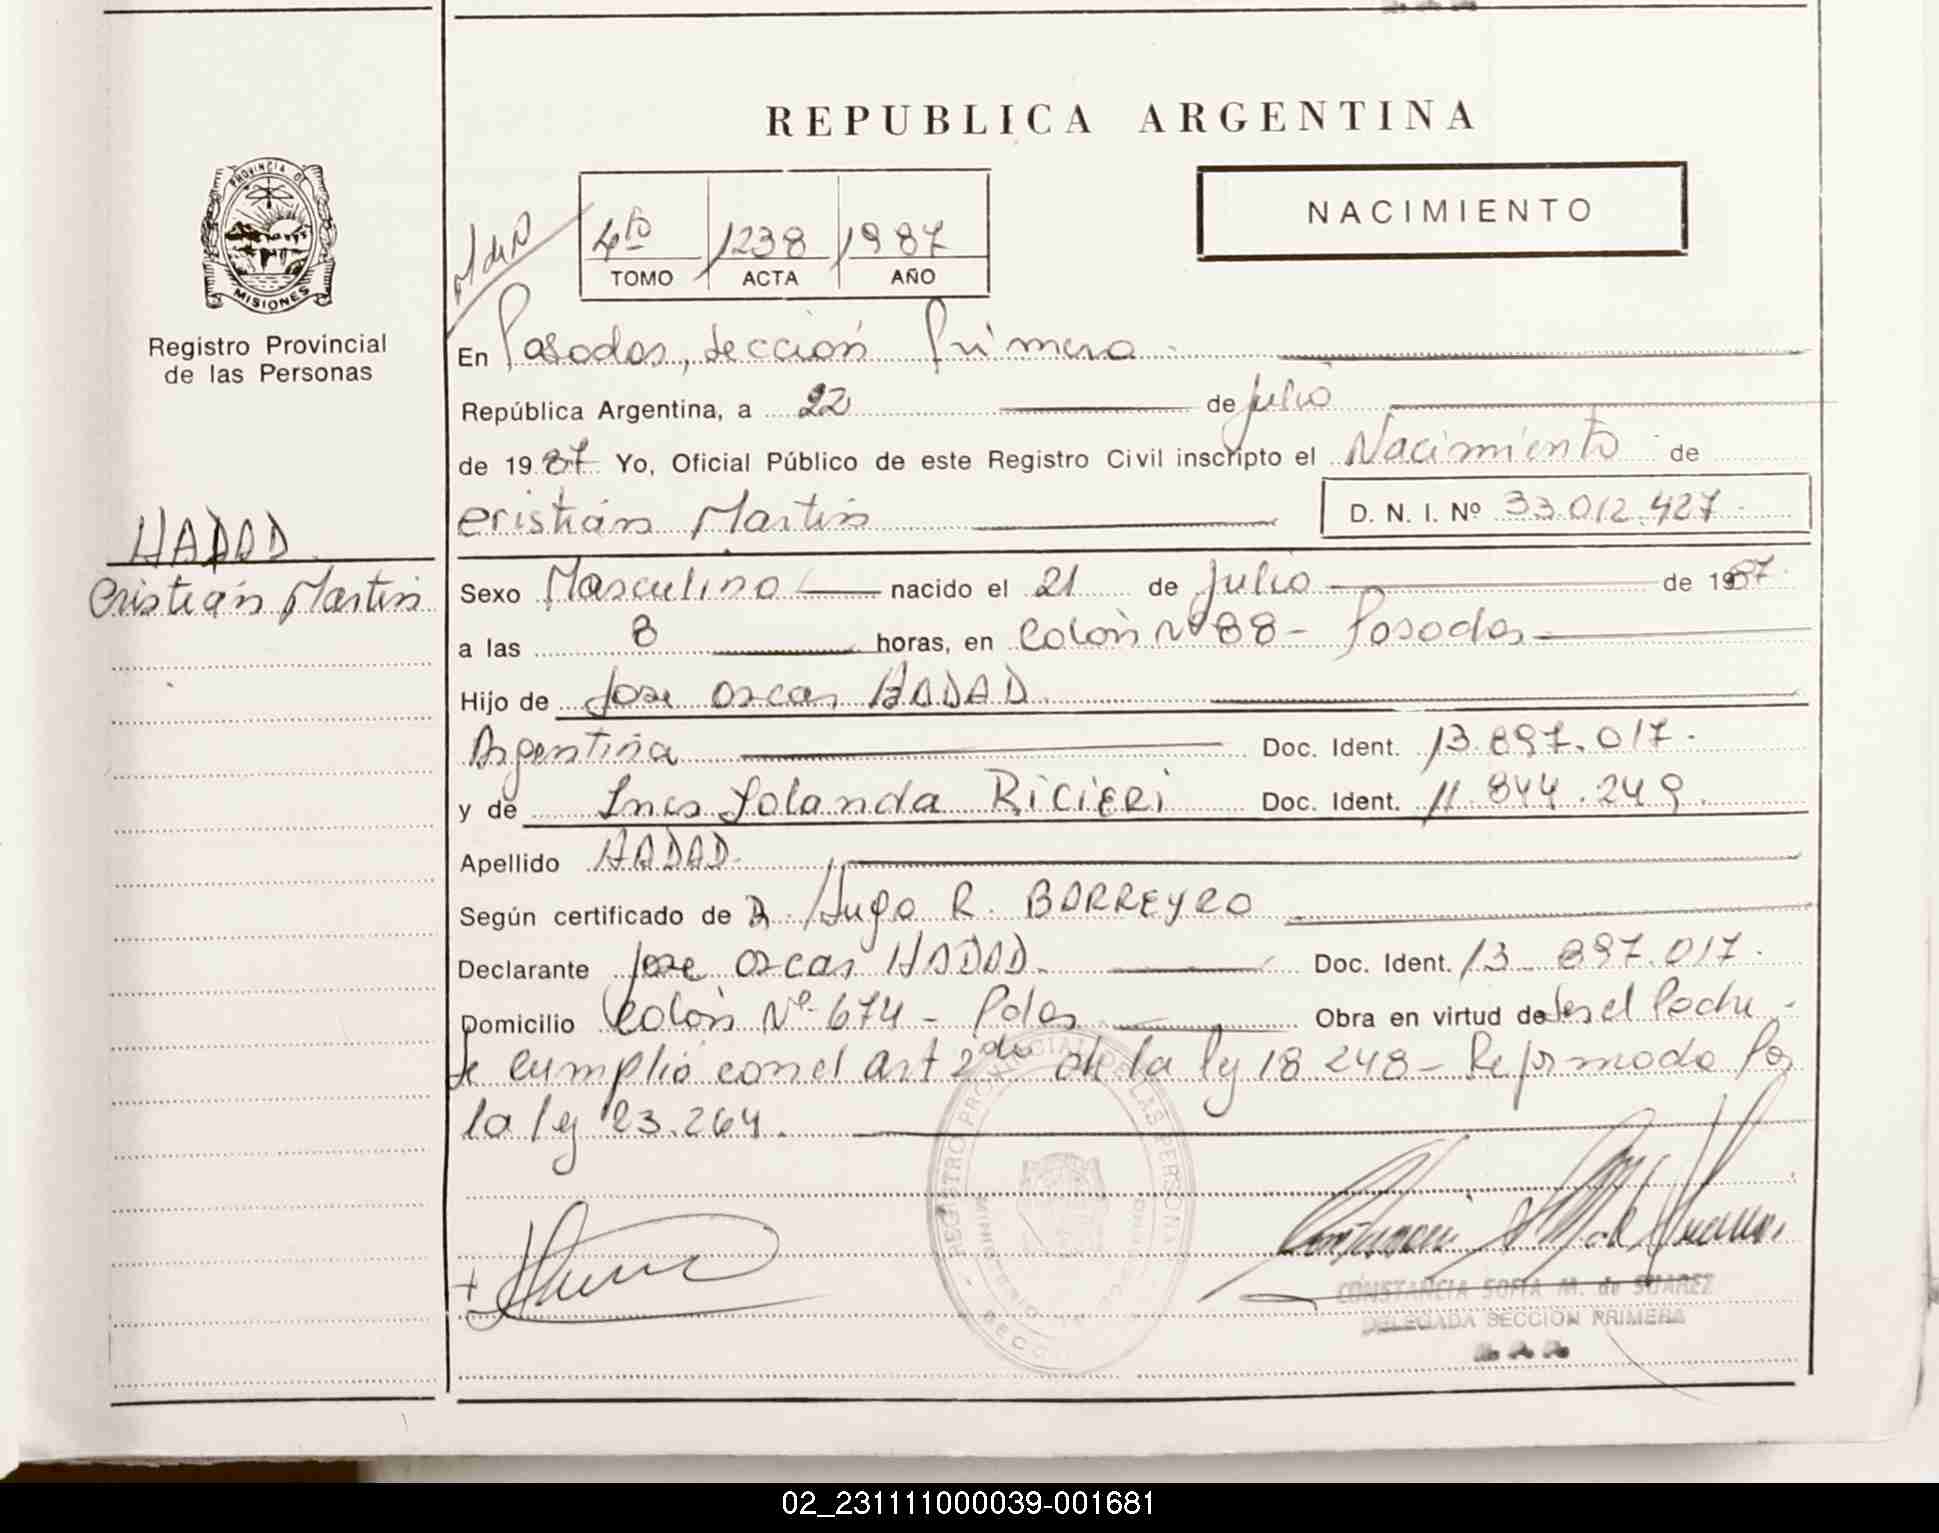 REPUBLICA ARGENTINA
NACIMIENTO
4to 1238 1987
TOMO ACTA AÑO
PROVINCIA DE
MISIONES
Registro Provincial
de las Personas
HADAD
Cristián Martin
En Posadas, Sección Primera
República Argentina, a 22 de julio
de 1987 Yo, Oficial Público de este Registro Civil inscripto el Nacimiento de
Cristián Martin D. N. I. Nº 33.012.427
Sexo Masculino nacido el 21 de Julio de 1987
a las 8 horas, en Colón Nº 88 - Posadas
Hijo de Jose Oscar HADAD
Argentina Doc. Ident. 13.897.017.
y de Ines Yolanda RICIERI Doc. Ident. 11.844.249.
Apellido HADAD
Según certificado de Hugo R. BARREYRO
Declarante Jose Oscar HADAD. Doc. Ident. 13.897.017.
Domicilio Colón Nº 674 - Pdas Obra en virtud de Ser el Padre -
Se cumplió con el art 2do de la ley 18.248 - Reformada Por
la ley 23.264.
REGISTRO PROVINCIAL DE LAS PERSONAS
CONSTANCIA SOFIA M. de SUAREZ
DELEGADA SECCION PRIMERA
R. P. P.
02_231111000039-001681